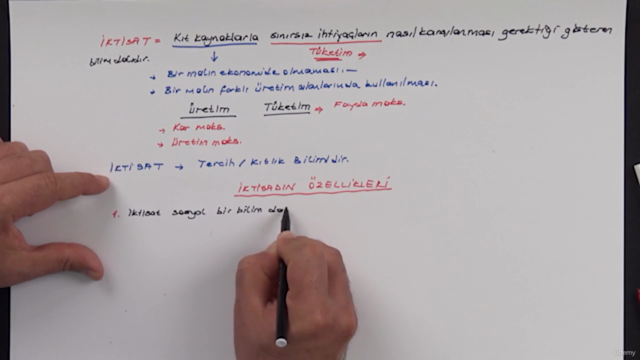 İKTİSAT = Kıt kaynaklarla sınırsız ihtiyaçların nasıl karşılanması gerektiği gösteren
bilim dalıdır.
Tüketim →
→ Bir malın ekonomide olmaması. —
→ Bir malın farklı üretim alanlarında kullanılması.
Üretim Tüketim → Fayda maks.
→ Kar maks.
→ Üretim maks.
İKTİSAT → Tercih / Kıtlık Bilimidir.
İKTİSADIN ÖZELLİKLERİ
1. İktisat sosyal bir bilim da